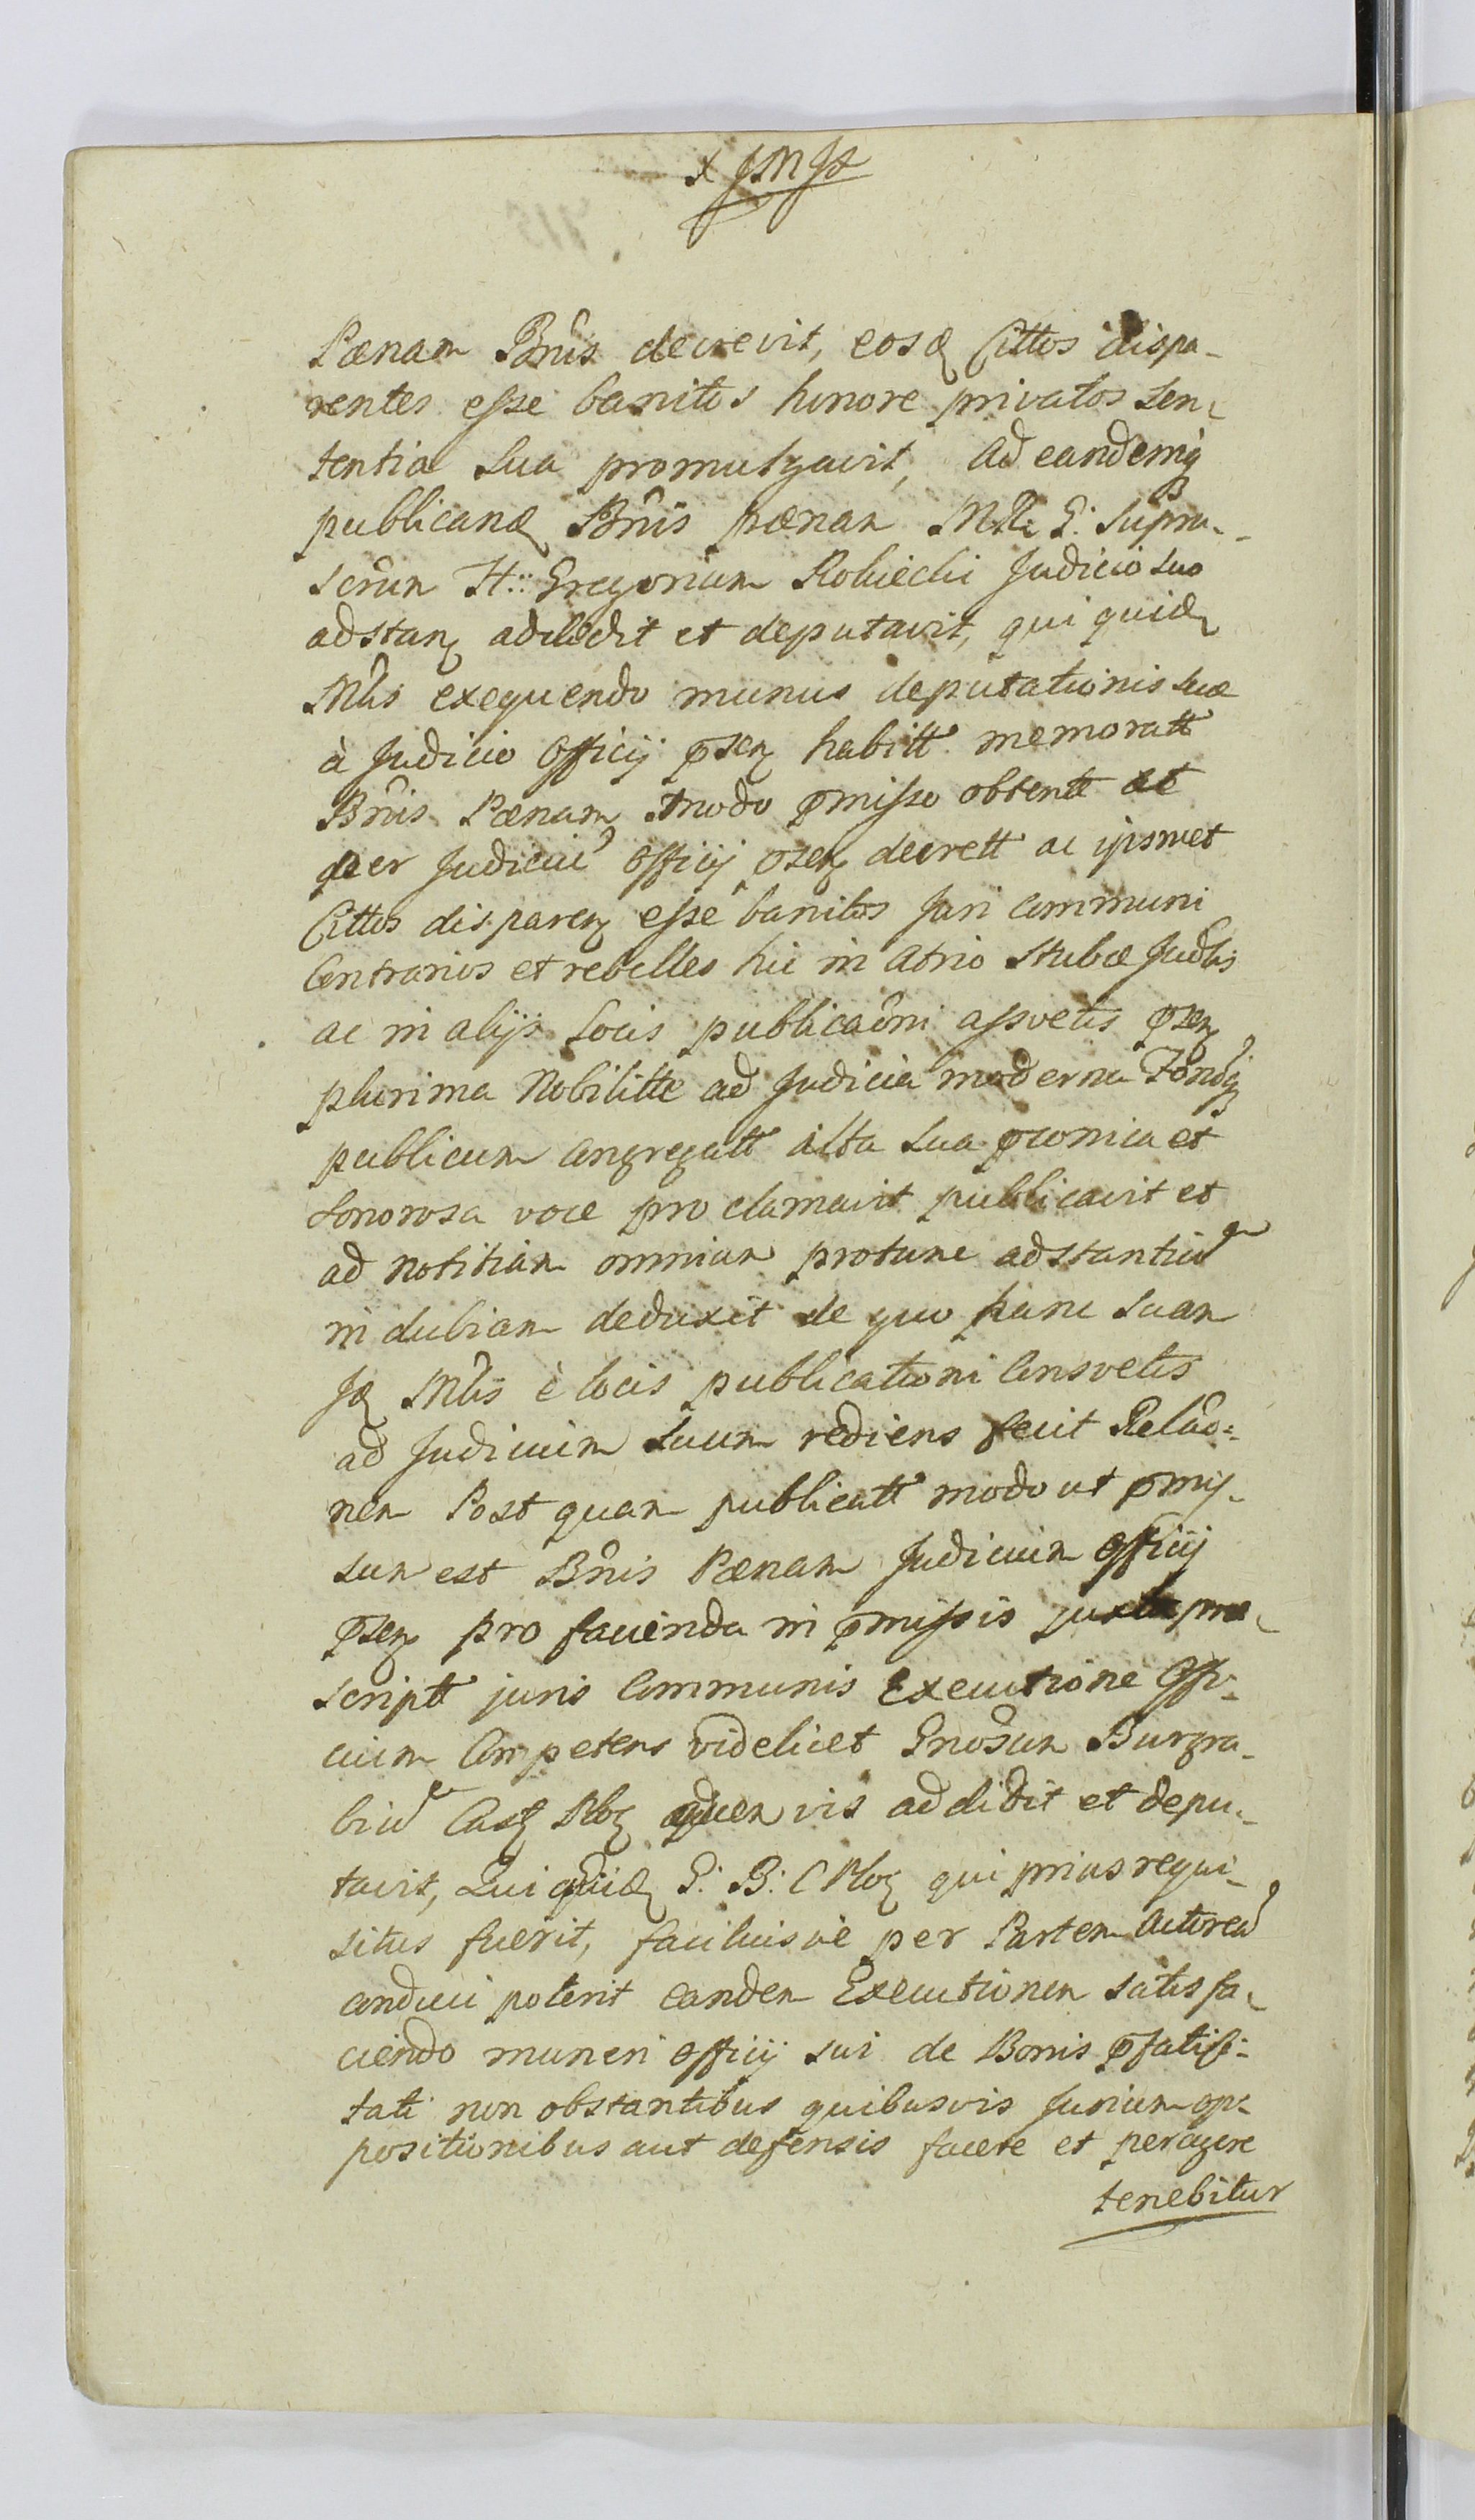 x JMJ
Pænam Bnis decrevit, eosq Cittos dispa-
rentes esse banitos honore privatos sen-
tentia sua promulgavit, Ad eandemq
publicandæ Bnis pænam MR: G: supra-
scrum H:: Gregorium Robiecki Judicio suo
adstan addidit et deputavit, qui quid
Mlis exequendo munus deputationis suæ
à Judicio Officij psen habitt memoratt
Bnis Pænam modo pmisso obtentt et
per Judiciu Officij psen decrett ac ipsmet
Cittos disparen esse banitos Juri Communi
Contrarios et rebelles hic in Atrio Stubæ Judlis
ac in alijs Locis publicaoni assvetis psen
plurima Nobilitte ad Judicia moderna
publicum Congregatt alta sua pconica et
Sonorosa voce proclamavit publicavit et
ad notitiam omnium protunc adstantiu
in dubiam deduxit de quo hanc suam
Id Mlis è locis publicationi Consvetis
ad Judicium suum rediens fecit Relao=
nem Post quam publicatt modo ut pmis-
sum est Bnis Pænam Judicium Officij
psen pro facienda in pmissis juxta præ-
scriptt juris Communis Executione Offi-
cium Competens videlicet Gnosum Burgra-
biu Cast Ploc quem vis addidit et depu-
tavit, Qui quid G: B: C Ploc qui prius requi-
situs fuerit, faciliusve per Partem Actorea
conduci poterit eandem Executionem satisfa-
ciendo muneri Officij sui de Bonis pfatisi-
tati non obstantibus quibusvis Jurium op-
positionibus aut defensis facere et peragere
tenebitur